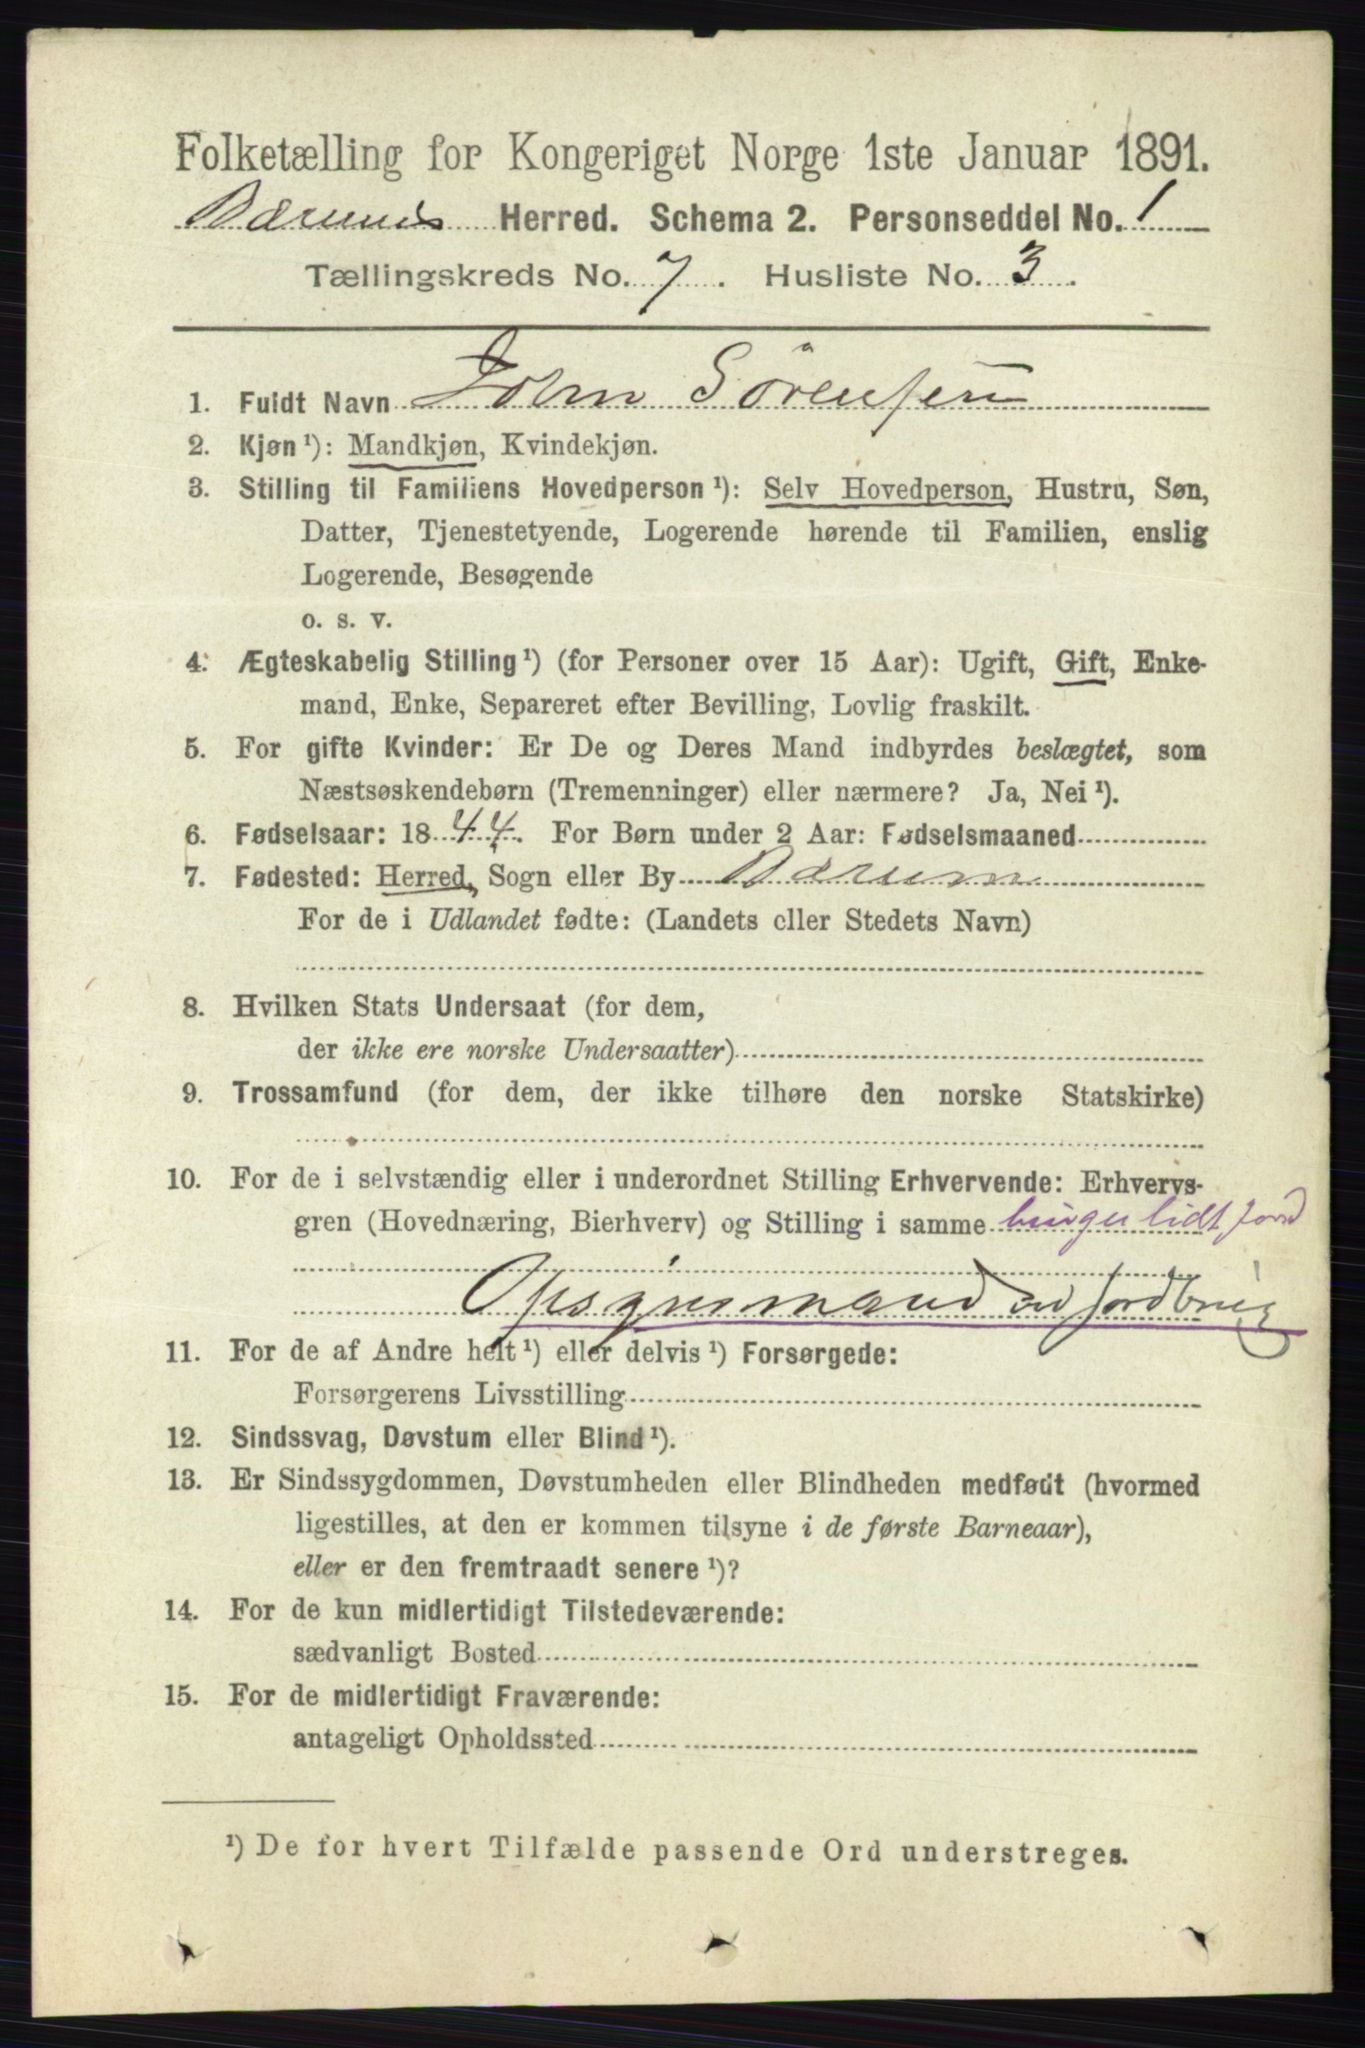 Folketælling for Kongeriget Norge 1ste Januar 1891.
Bærums Herred. Schema 2. Personseddel No. 1
Tællingskreds No. 7. Husliste No. 3.
1. Fuldt Navn John Sörensen
2. Kjøn¹): Mandkjøn, Kvindekjøn.
3. Stilling til Familiens Hovedperson¹): Selv Hovedperson, Hustru, Søn,
Datter, Tjenestetyende, Logerende hørende til Familien, enslig
Logerende, Besøgende
o. s. v.
4. Ægteskabelig Stilling¹) (for Personer over 15 Aar): Ugift, Gift, Enke-
mand, Enke, Separeret efter Bevilling, Lovlig fraskilt.
5. For gifte Kvinder: Er De og Deres Mand indbyrdes beslægtet, som
Næstsøskendebørn (Tremenninger) eller nærmere? Ja, Nei¹).
6. Fødselsaar: 1844. For Børn under 2 Aar: Fødselsmaaned
7. Fødested: Herred, Sogn eller By Bærum
For de i Udlandet fødte: (Landets eller Stedets Navn)
8. Hvilken Stats Undersaat (for dem,
der ikke ere norske Undersaatter)
9. Trossamfund (for dem, der ikke tilhøre den norske Statskirke)
10. For de i selvstændig eller i underordnet Stilling Erhvervende: Erhvervs-
gren (Hovednæring, Bierhverv) og Stilling i samme bruger lidt jord
Opsynsmand ved Jordbrug
11. For de af Andre helt¹) eller delvis¹) Forsørgede:
Forsørgerens Livsstilling
12. Sindssvag, Døvstum eller Blind¹).
13. Er Sindssygdommen, Døvstumheden eller Blindheden medfødt (hvormed
ligestilles, at den er kommen tilsyne i de første Barneaar),
eller er den fremtraadt senere¹)?
14. For de kun midlertidigt Tilstedeværende:
sædvanligt Bosted
15. For de midlertidigt Fraværende:
antageligt Opholdssted
¹) De for hvert Tilfælde passende Ord understreges.